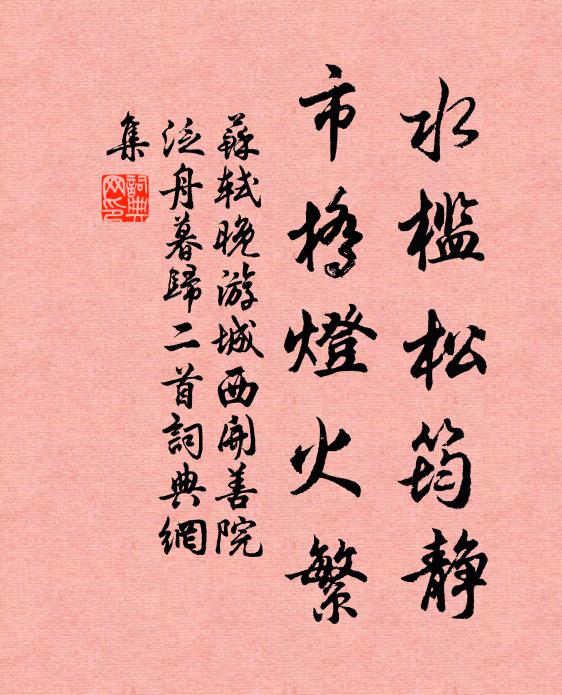 水檻松筠静
市橋燈火繁
蘇軾晚游城西開善院
泛舟暮歸二首詞典網
集
詞典
网印